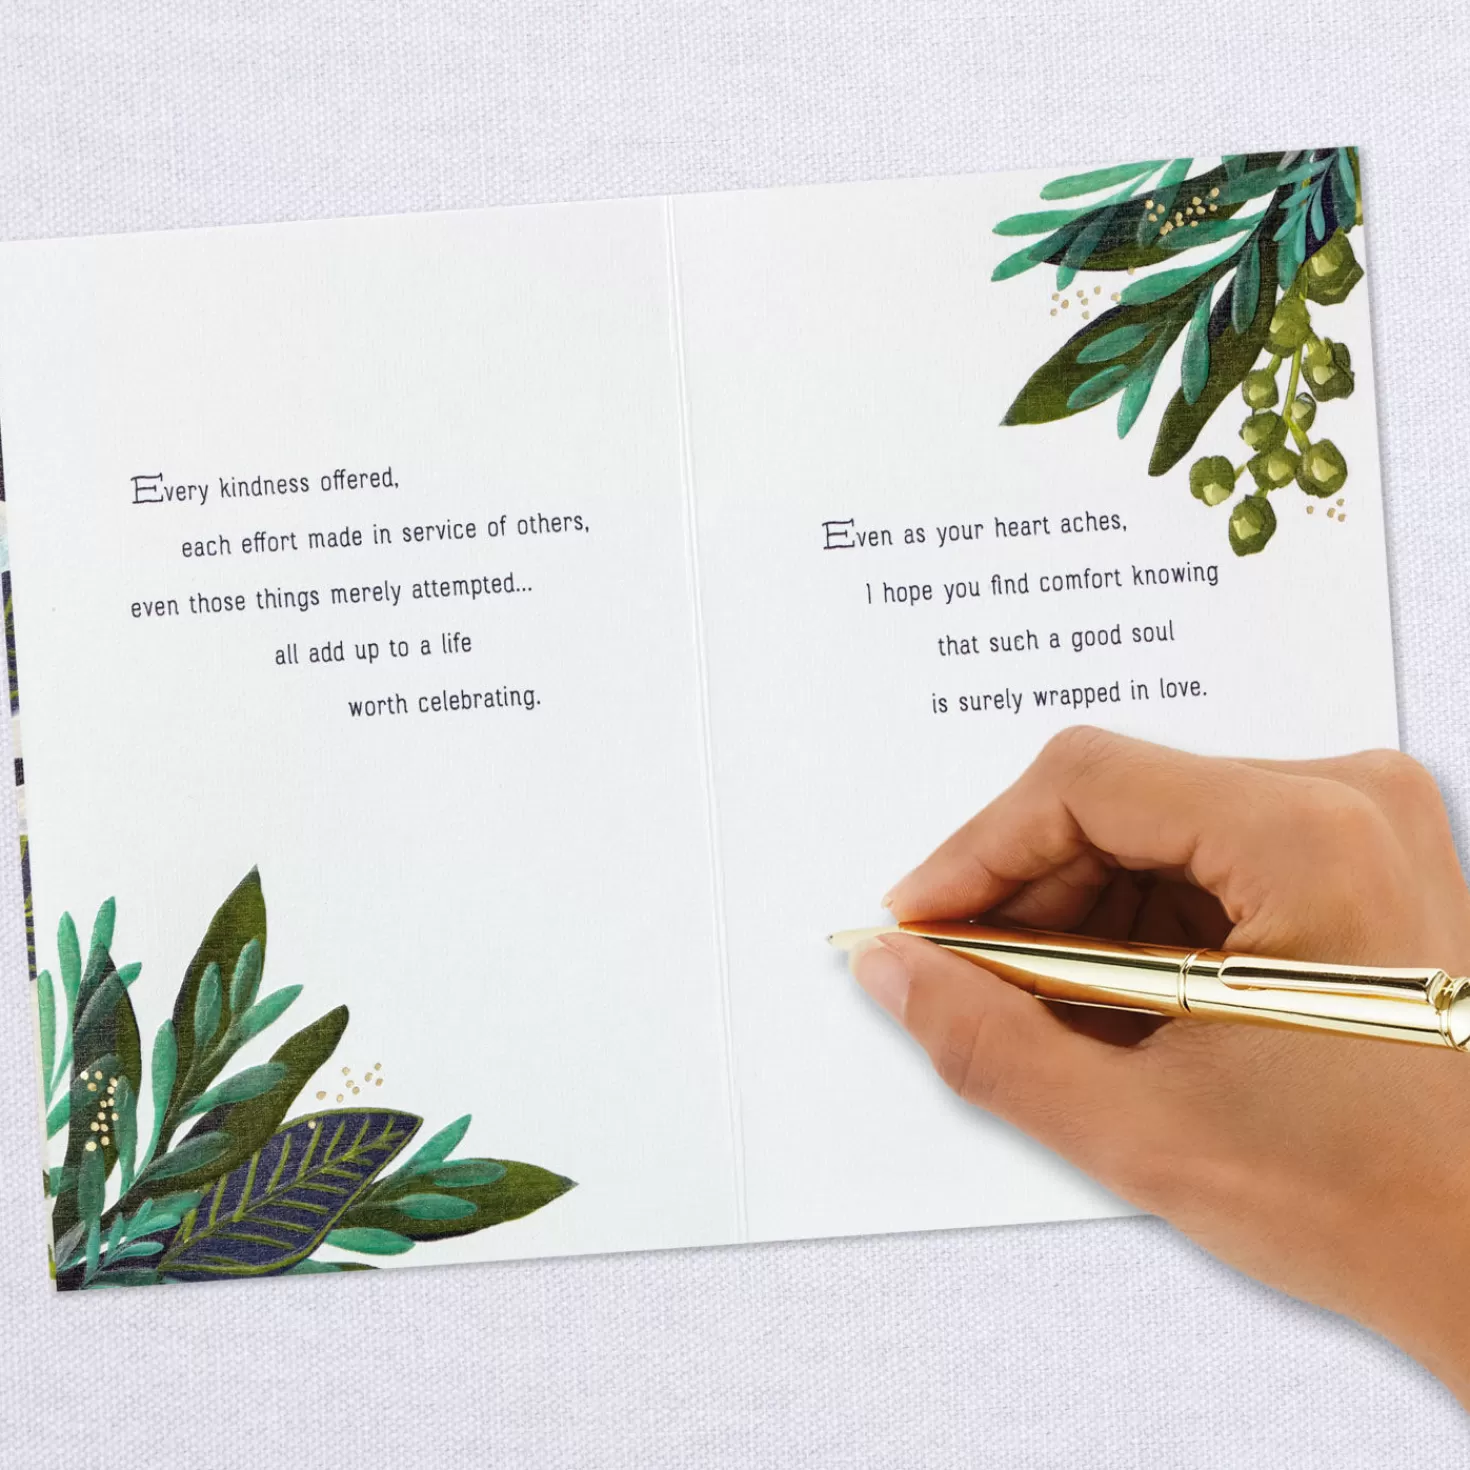 Every kindness offered,
each effort made in service of others,
even those things merely attempted...
all add up to a life
worth celebrating.
Even as your heart aches,
I hope you find comfort knowing
that such a good soul
is surely wrapped in love.